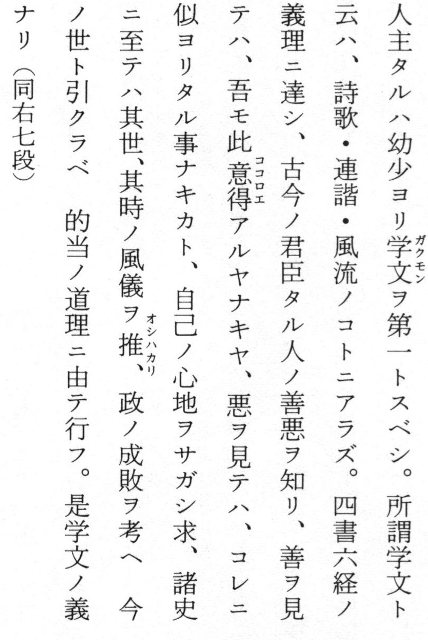 人主タルハ幼少ヨリ学文ヲ第一トスベシ。所謂学文ト
云ハ、詩歌・連諧・風流ノコトニアラズ。四書六経ノ
義理ニ達シ、古今ノ君臣タル人ノ善悪ヲ知リ、善ヲ見
テハ、吾モ此意得アルヤナキヤ、悪ヲ見テハ、コレニ
似ヨリタル事ナキカト、自己ノ心地ヲサガシ求、諸史
ニ至テハ其世、其時ノ風儀ヲ推、政ノ成敗ヲ考ヘ　今
ノ世ト引クラベ　的当ノ道理ニ由テ行フ。是学文ノ義
ナリ（同右七段）
ガクモン
ココロエ
オシハカリ